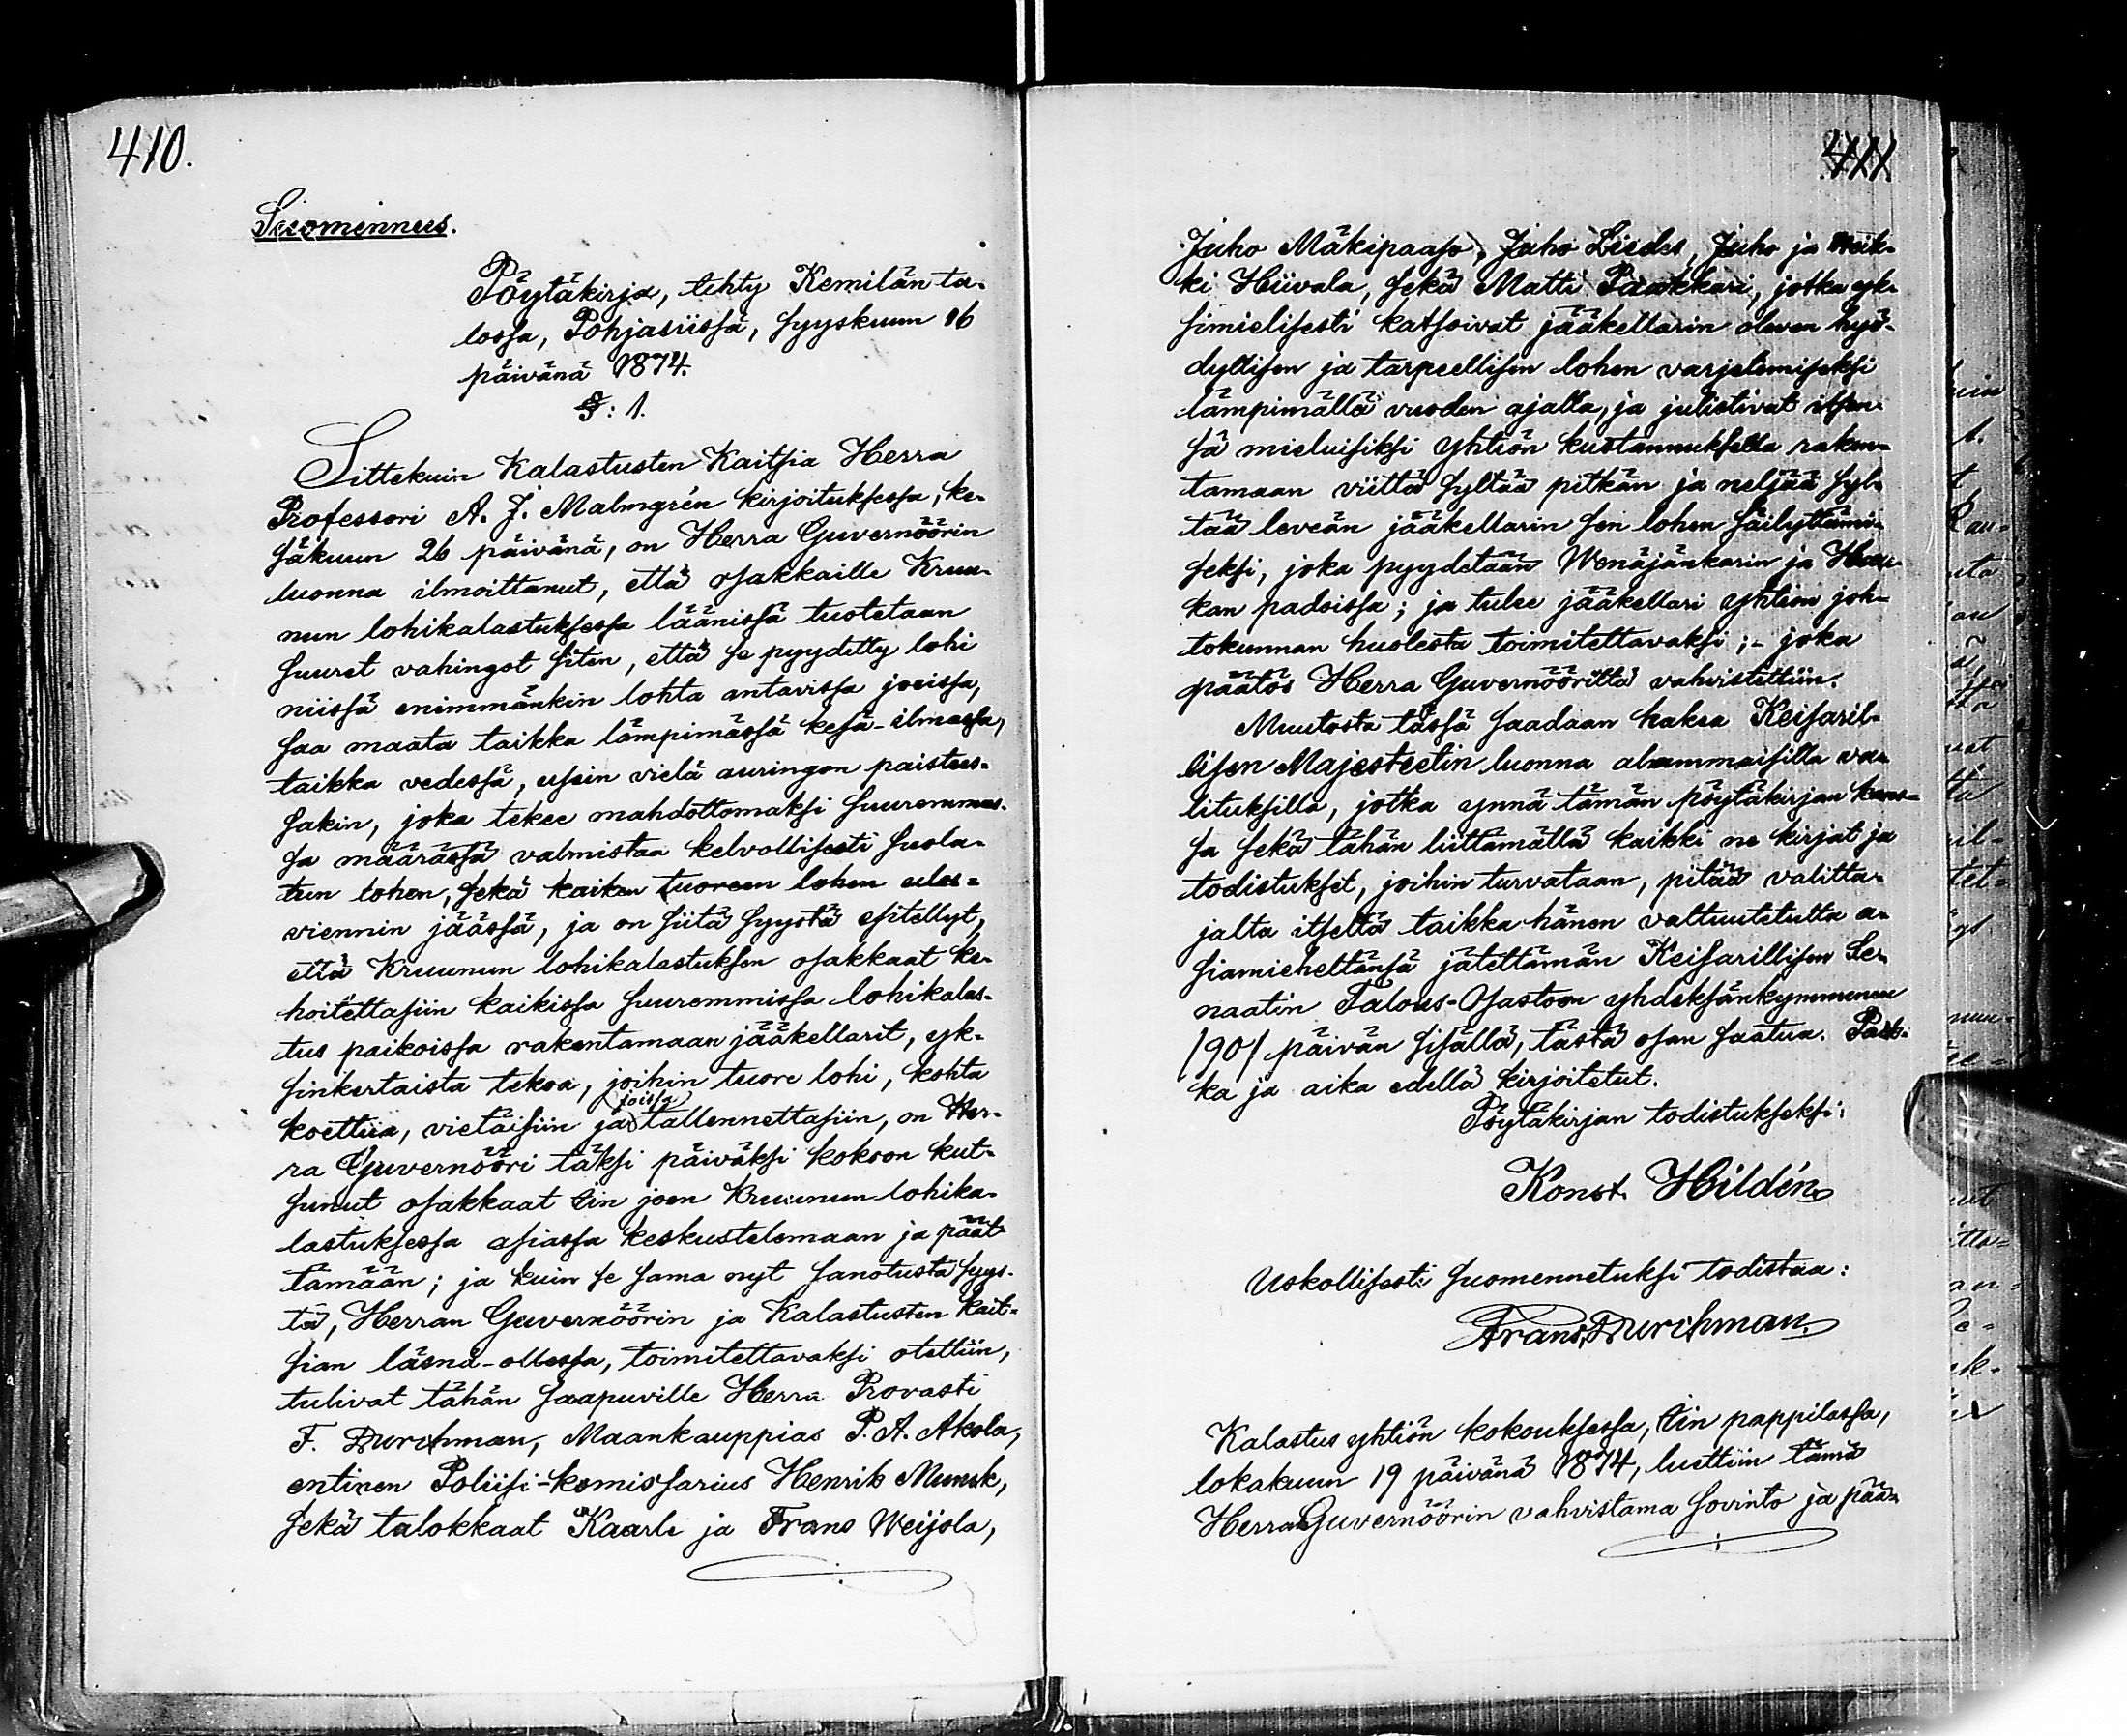 410.
Suomennus.
Pöytäkirja, tehty Kemilän ta-
lossa, Pohjasiissä, syyskuun 16
päivänä 1874.
§: 1.
Sittekuin Kalastusten Kaitsia Herra
Professori A. J. Malmgrén kirjoituksessa, ke-
säkuun 26 päivänä, on Herra Guvernöörin
luonna ilmoittanut, että osakkaille Kruu-
nun lohikalastuksessa läänissä tuotetaan
suuret vahingot siten, että se pyydetty lohi
niissä enimmänkin lohta antavissa joeissa,
saa maata taikka lämpimässä kesä-ilmassa,
taikka vedessä, usein vielä auringon paistees-
sakin, joka tekee mahdottomaksi suuremmas-
sa määrässä valmistaa kelvollisesti suola-
tun lohen, sekä kaiken tuoreen lohen ules-
viennin jäässä, ja on siitä syystä esitellyt,
että Kruunun lohikalastuksen osakkaat ke-
hoitettasiin kaikissa suuremmissa lohikalas-
tus paikoissa rakentamaan jääkellarit, yk-
sinkertaista tekoa, joihin tuore lohi, kohta
koettua, vietäisiin ja (joissa) tallennettasiin, on Her-
ra Guvernööri täksi päiväksi kokoon kut-
sunut osakkaat Iin joen Kruunun lohika-
lastuksessa asiassa keskustelemaan ja päät-
tämään; ja kuin se sama nyt sanotusta syys-
tä, Herran Guvernöörin ja Kalastusten Kait-
sian läsnä-ollessa, toimitettavaksi otettiin,
tulivat tähän saapuville Herra Provasti
F. Durchman, Maankauppias P. A. Akola,
entinen Poliisi-komissarius Henrik Munck,
sekä talokkaat Kaarle ja Frans Weijola,
411
Juho Mäkipaaso, Juho Liedes, Juho ja Heik-
ki Hiivala, sekä Matti Paakkari, jotka yk-
simielisesti katsoivat jääkellarin olevan hyö-
dyllisen ja tarpeellisen lohen varjelemiseksi
lämpimällä vuoden ajalla, ja julistivat itsen-
sä mieluisiksi yhtiön kustannuksella raken-
tamaan viittä syltää pitkän ja neljää syl-
tää leveän jääkellarin sen lohen säilyttämi-
seksi, joka pyydetään Wenäjänkarin ja Hau-
kan padoissa; ja tulee jääkellari yhtiön joh-
tokunnan huolesta toimitettavaksi; - joka
päätös Herra Guvernööriltä vahvistettiin.
Muutosta tässä saadaan hakea Keisaril-
lisen Majesteetin luonna alammaisilla va-
lituksilla, jotka ynnä tämän pöytäkirjan kans-
sa sekä tähän liittämällä kaikki ne kirjat ja
todistukset, joihin turvataan, pitää valitta-
jalta itseltä taikka hänen valtuutetulta a-
siamieheltänsä jätettämän Keisarillisen Se-
naatin Talous-Osastoon yhdeksänkymmenen
/90/ päivän sisällä, tästä osan saatua. Paik-
ka ja aika edellä kirjoitetut.
Pöytäkirjan todistukseksi:
Konst. Hildén
Uskollisesti suomennetuksi todistaa:
Frans Durchman.
Kalastus yhtiön kokouksessa, Iin pappilassa,
lokakuun 19 päivänä 1874, luettiin tämä
Herran Guvernöörin vahvistama sovinto ja pää-